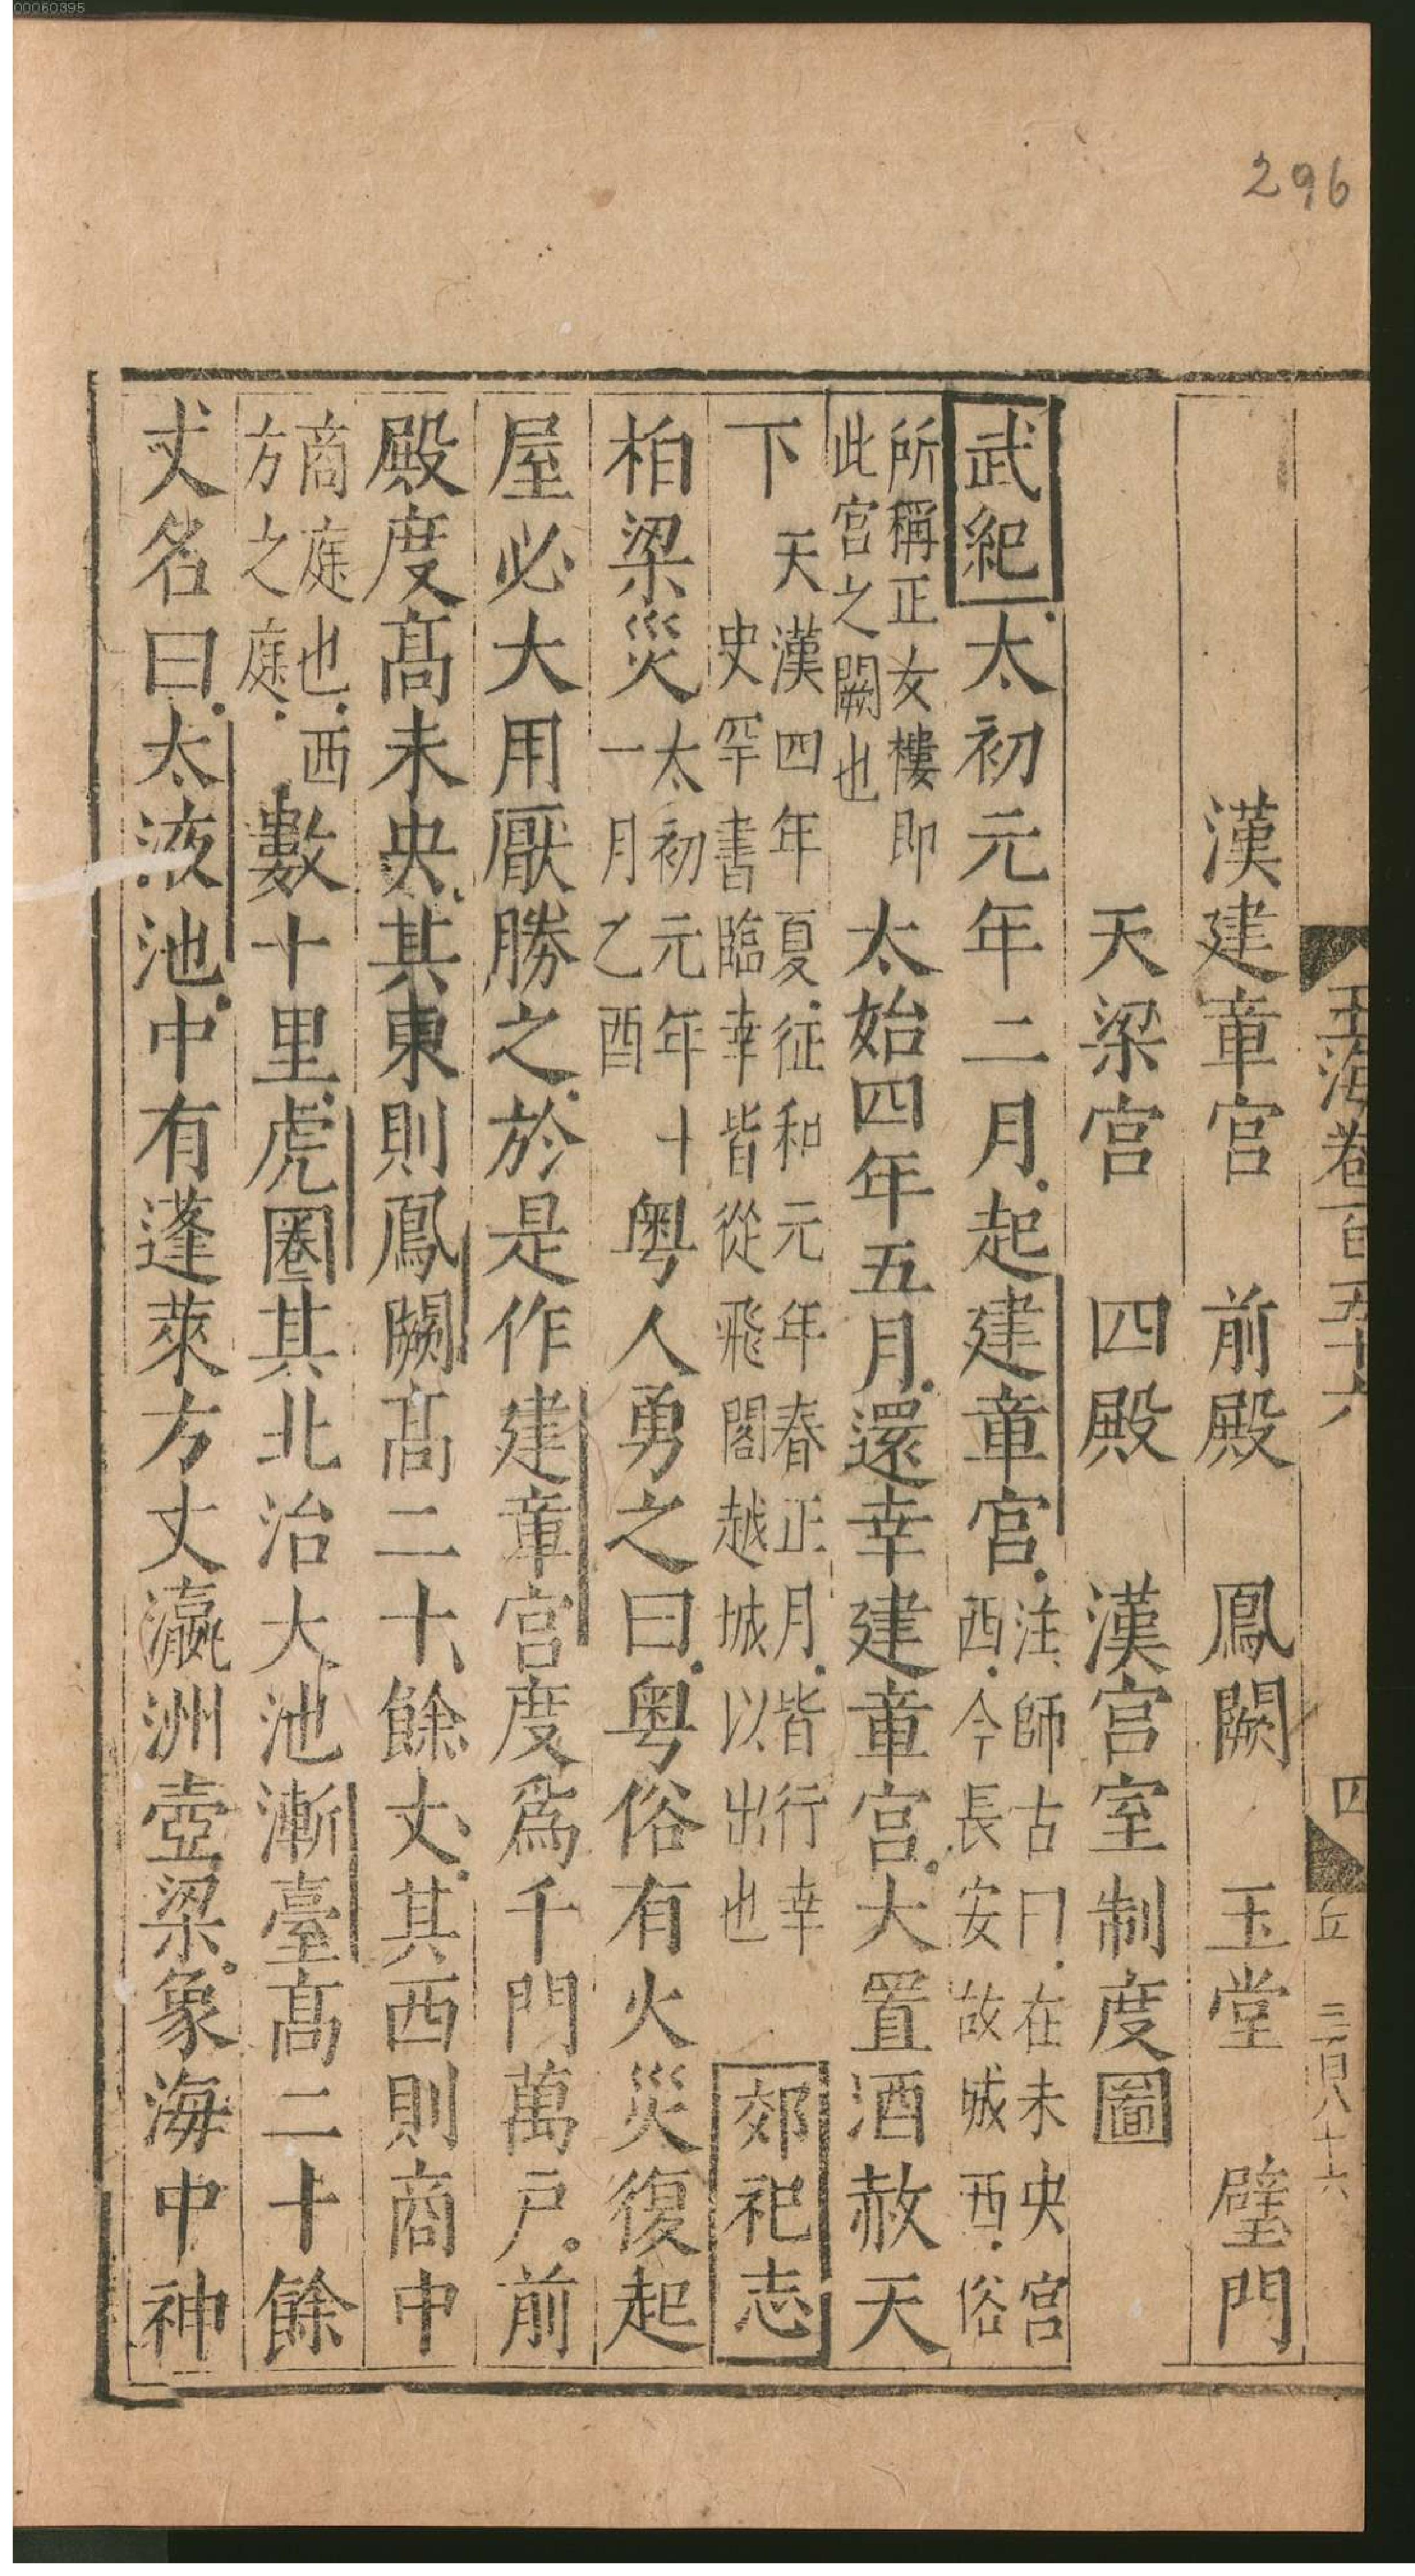 00060395
296
玉海卷百五十六 四 丘 三百八十六
漢建章宮 前殿 鳳闕 玉堂 璧門
天梁宮 四殿 漢宮室制度圖
武紀太初元年二月起建章宮注師古曰在未央宮
西今長安故城西俗
所稱正女樓即
此宮之闕也太始四年五月還幸建章宮大置酒赦天
下天漢四年夏征和元年春正月皆行幸
史罕書臨幸皆從飛閣越城以出也郊祀志
柏梁災太初元年十
一月乙酉粤人勇之曰粤俗有火災復起
屋必大用厭勝之於是作建章宮度爲千門萬戶前
殿度髙未央其東則鳳闕髙二十餘丈其西則商中
商庭也西
方之庭數十里虎圈其北治大池漸臺髙二十餘
丈名曰太液池中有蓬萊方丈瀛洲壺梁象海中神